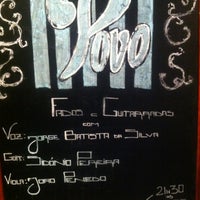 Povo
Fados e Guitarradas
com
Voz: Jorge Batista da Silva
Guit: Sidónio Pereira
Viola: João Penedo
21h30